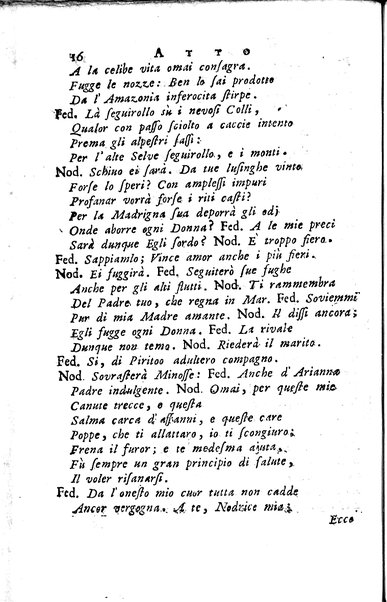 16 ATTO
A la celibe vita omai conſagra.
Fugge le nozze: Ben lo ſai prodotto
Da l'Amazonia inferocita ſtirpe.
Fed. Là ſeguirollo sù i nevoſi Colli,
Qualor con paſſo ſciolto a caccie intento
Prema gli alpeſtri ſaſſi:
Per l'alte Selve ſeguirollo, e i monti.
Nod. Schivo ei ſarà. Da tue luſinghe vinto
Forſe lo ſperi? Con ampleſſi impuri
Profanar vorrà forſe i riti caſti?
Per la Madrigna ſua deporrà gli odj
Onde aborre ogni Donna? Fed. A le mie preci
Sarà dunque Egli ſordo? Nod. E' troppo fiero.
Fed. Sappiamlo; Vince amor anche i più fieri.
Nod. Ei fuggirà. Fed. Seguiterò ſue fughe
Anche per gli alti flutti. Nod. Ti rammembra
Del Padre tuo, che regna in Mar. Fed. Soviemmi
Pur di mia Madre amante. Nod. Il diſſi ancora;
Egli fugge ogni Donna. Fed. La rivale
Dunque non temo. Nod. Riederà il marito.
Fed. Si, di Piritoo adultero compagno.
Nod. Sovraſterà Minoſſe: Fed. Anche d'Arianna
Padre indulgente. Nod. Omai, per queſte mie
Canute trecce, e queſta
Salma carca d'affanni, e queſte care
Poppe, che ti allattaro, io ti ſcongiuro;
Frena il furor; e te medeſma ajuta,
Fù ſempre un gran principio di ſalute,
Il voler riſanarſi.
Fed. Da l'oneſto mio cuor tutta non cadde
Ancor vergogna. A te, Nodrice mia;
Ecco